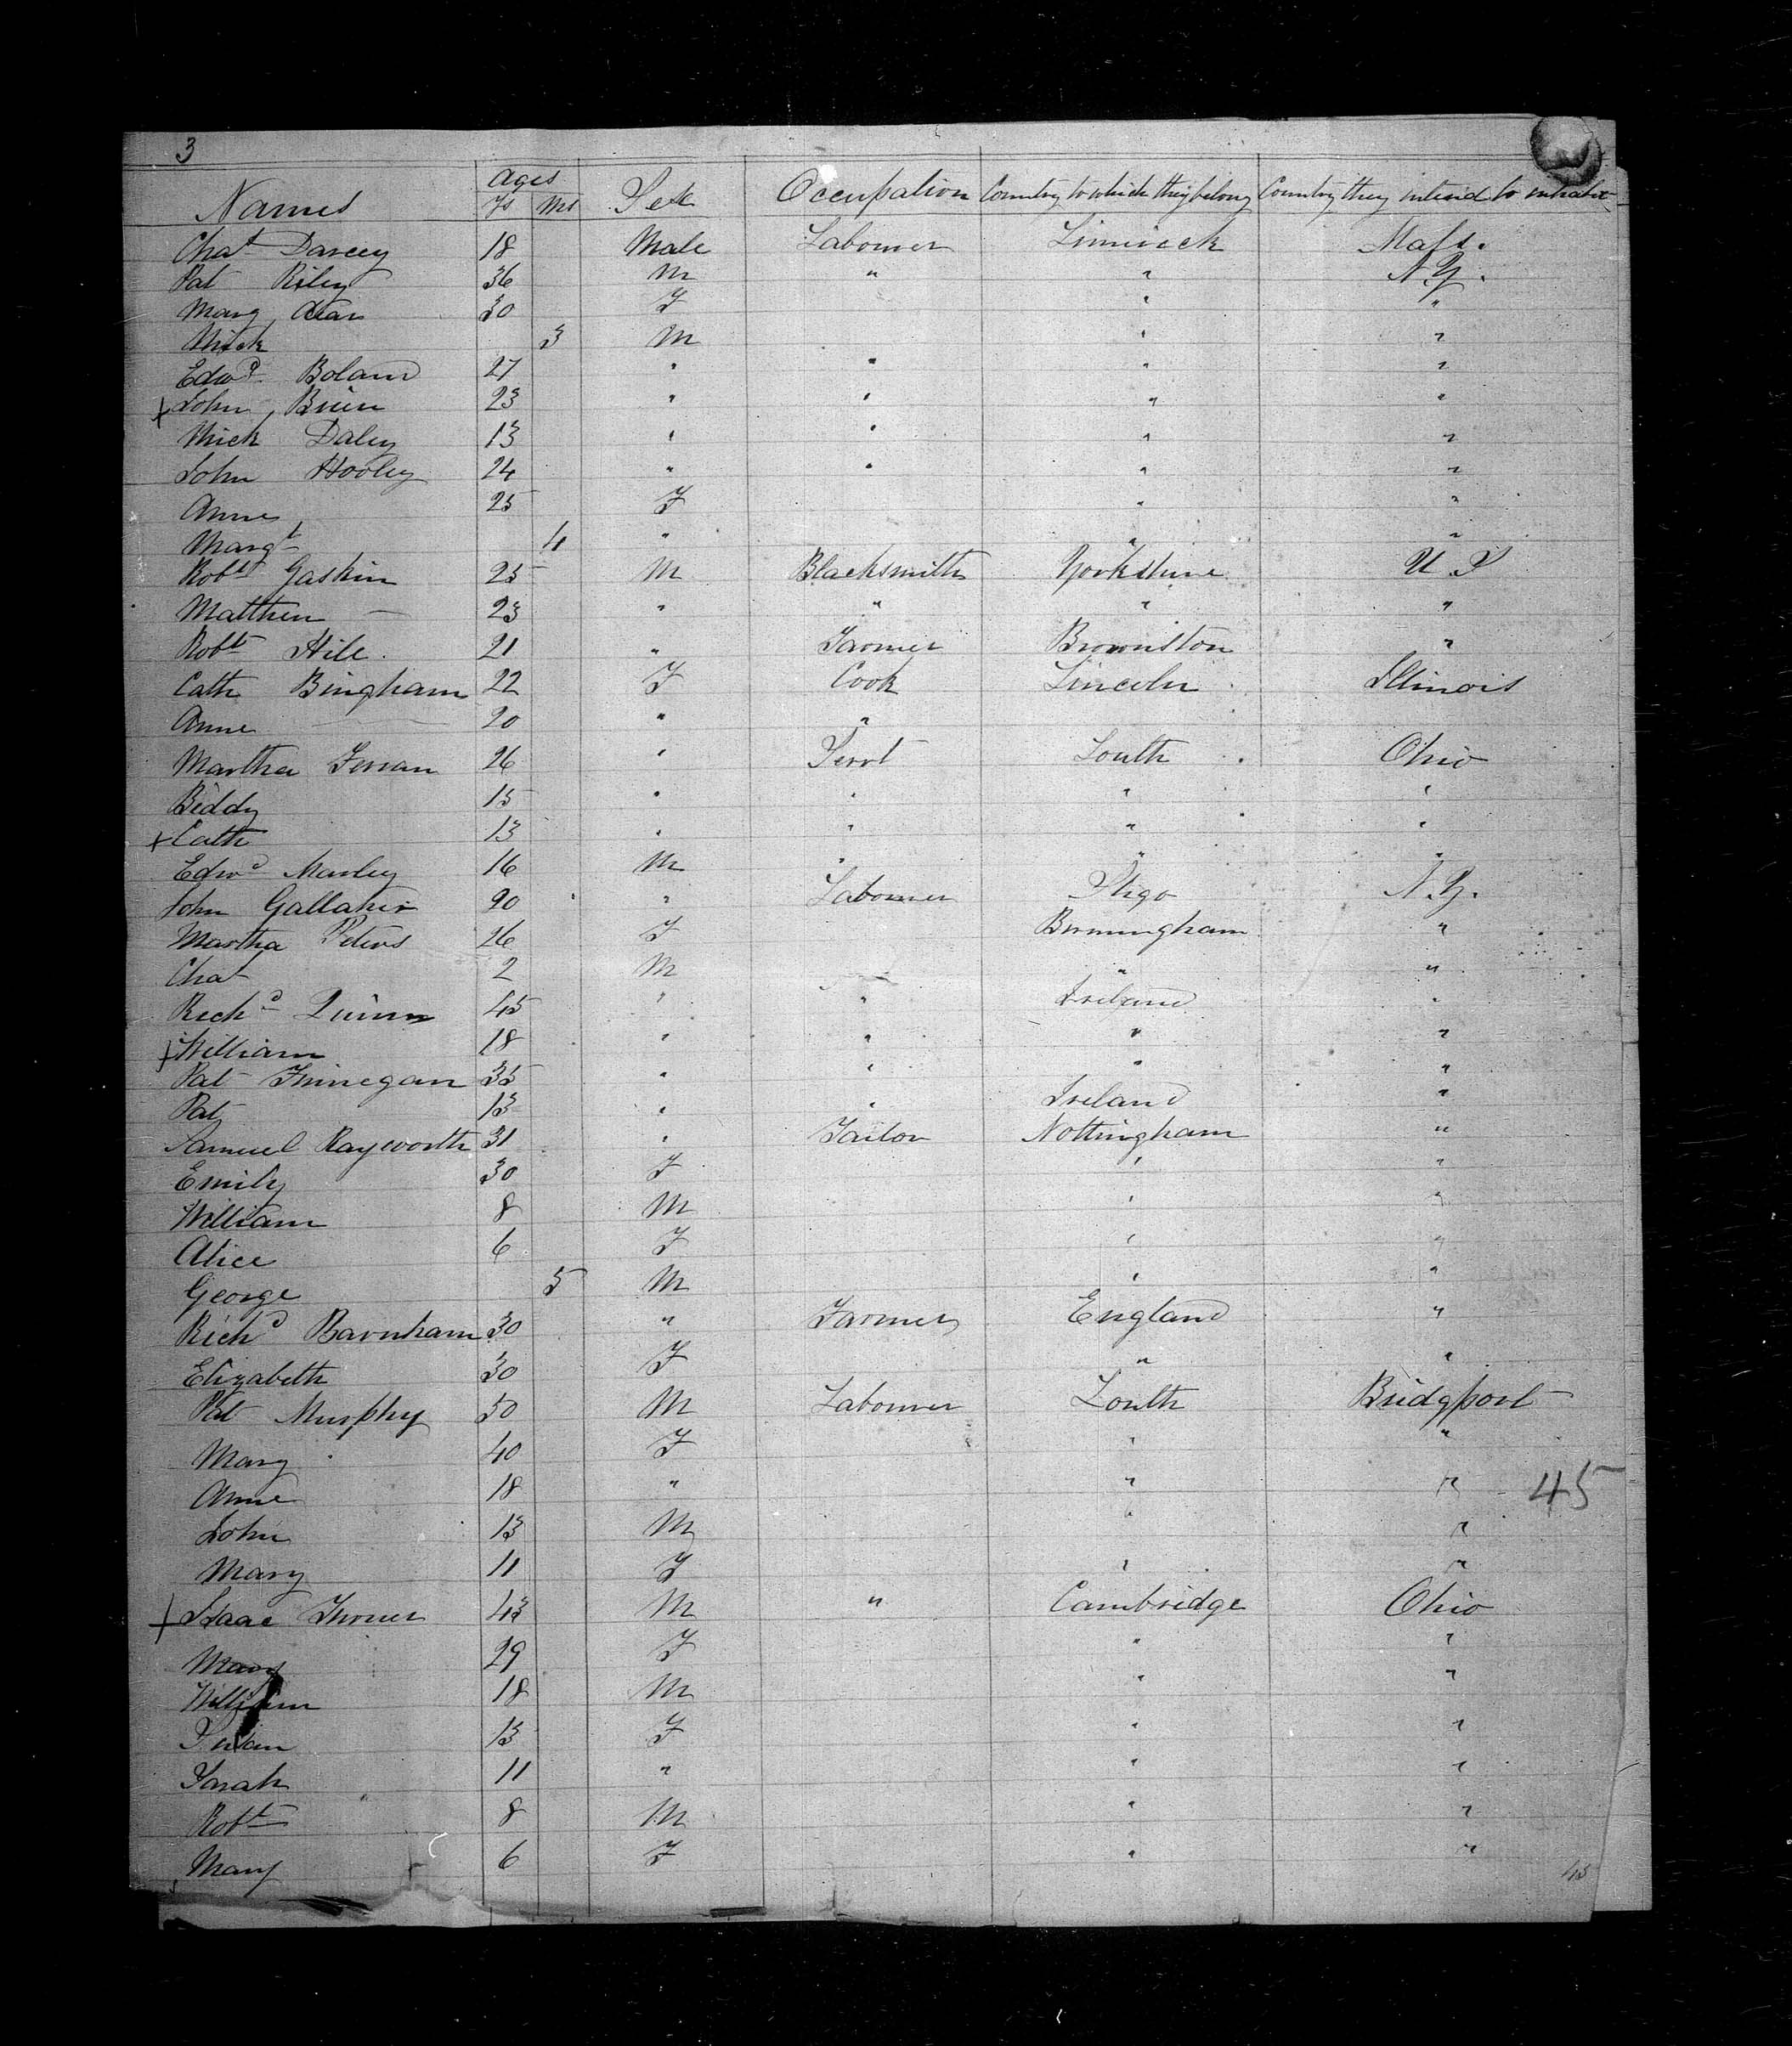 3
Names Ages Ys Ms Sex Occupation Country to which they belong Country they intend to inhabit
Chas Darcey 18 Male Labourer Limrick Mass.
Pat Riley 36 M " " N.Y.
Marg 30 F " "
Mick 3 M " "
Edwd Boland 27 " " " "
+ John Brien 23 " " " "
Mick Daley 13 " " " "
John Hooley 24 " " " "
Anne 25 F " "
Margt 4 " " "
Robt Gaskin 25 M Blacksmith Yorkshire U.S
Matthew — 23 " " " "
Robt Hile 21 " Farmer Brownston "
Cath Bingham 22 F Cook Lincoln Illinois
Anne — 20 " "
Martha 26 " Servt Louth Ohio
Biddy 15 " " " "
+ Cath 13 " " " "
Edwd Marley 16 M " " "
John Gallaher 20 " Labourer Sligo N.Y.
Martha Peters 26 F Birmingham "
Chas 2 M " "
Richd Quinn 45 " " Ireland "
+ William 18 " " " "
Pat Finnegan 35 " " " "
Pat 13 " " Ireland "
Samuel Rayworth 31 " Tailor Nottingham "
Emily 30 F " "
William 8 M " "
Alice 6 F " "
George 5 M " "
Richd Barnham 30 " Farmer England "
Elizabeth 30 F " "
Pat Murphy 50 M Labourer Louth Bridgport
Mary 40 F " "
Anne 18 " " " 45
John 13 M " "
Mary 11 F " "
+ Isaac 43 M " Cambridge Ohio
Mary 29 F " "
William 18 M " "
Susan 13 F " "
Sarah 11 " " "
Robt 8 M " "
Mary 6 F " "
45